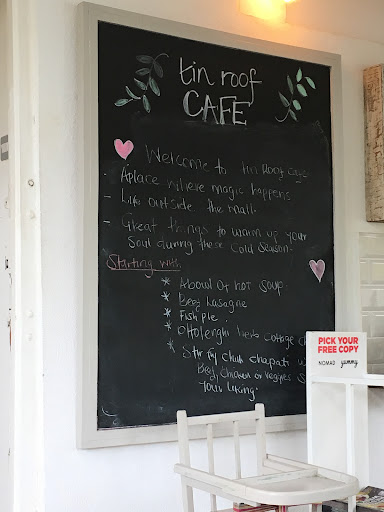 tin roof
CAFE
Welcome to tin Roof cafe
- A place where magic happens
- Life outside the mall.
- Great things to warm up your
Soul during these Cold Season
Starting with:
* A bowl of hot soup.
* Beef Lasagne
* Fish Pie.
* Ottolenghi herb cottage
* Stir fry chapati
Beef, Chicken or veggies
Your liking.
PICK YOUR
FREE COPY
NOMAD yummy